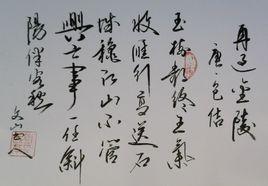 再过金陵
唐·包佶
玉樹歌終王氣
收雁行高送石
城秋江山不管
興亡事一任斜
陽伴客愁